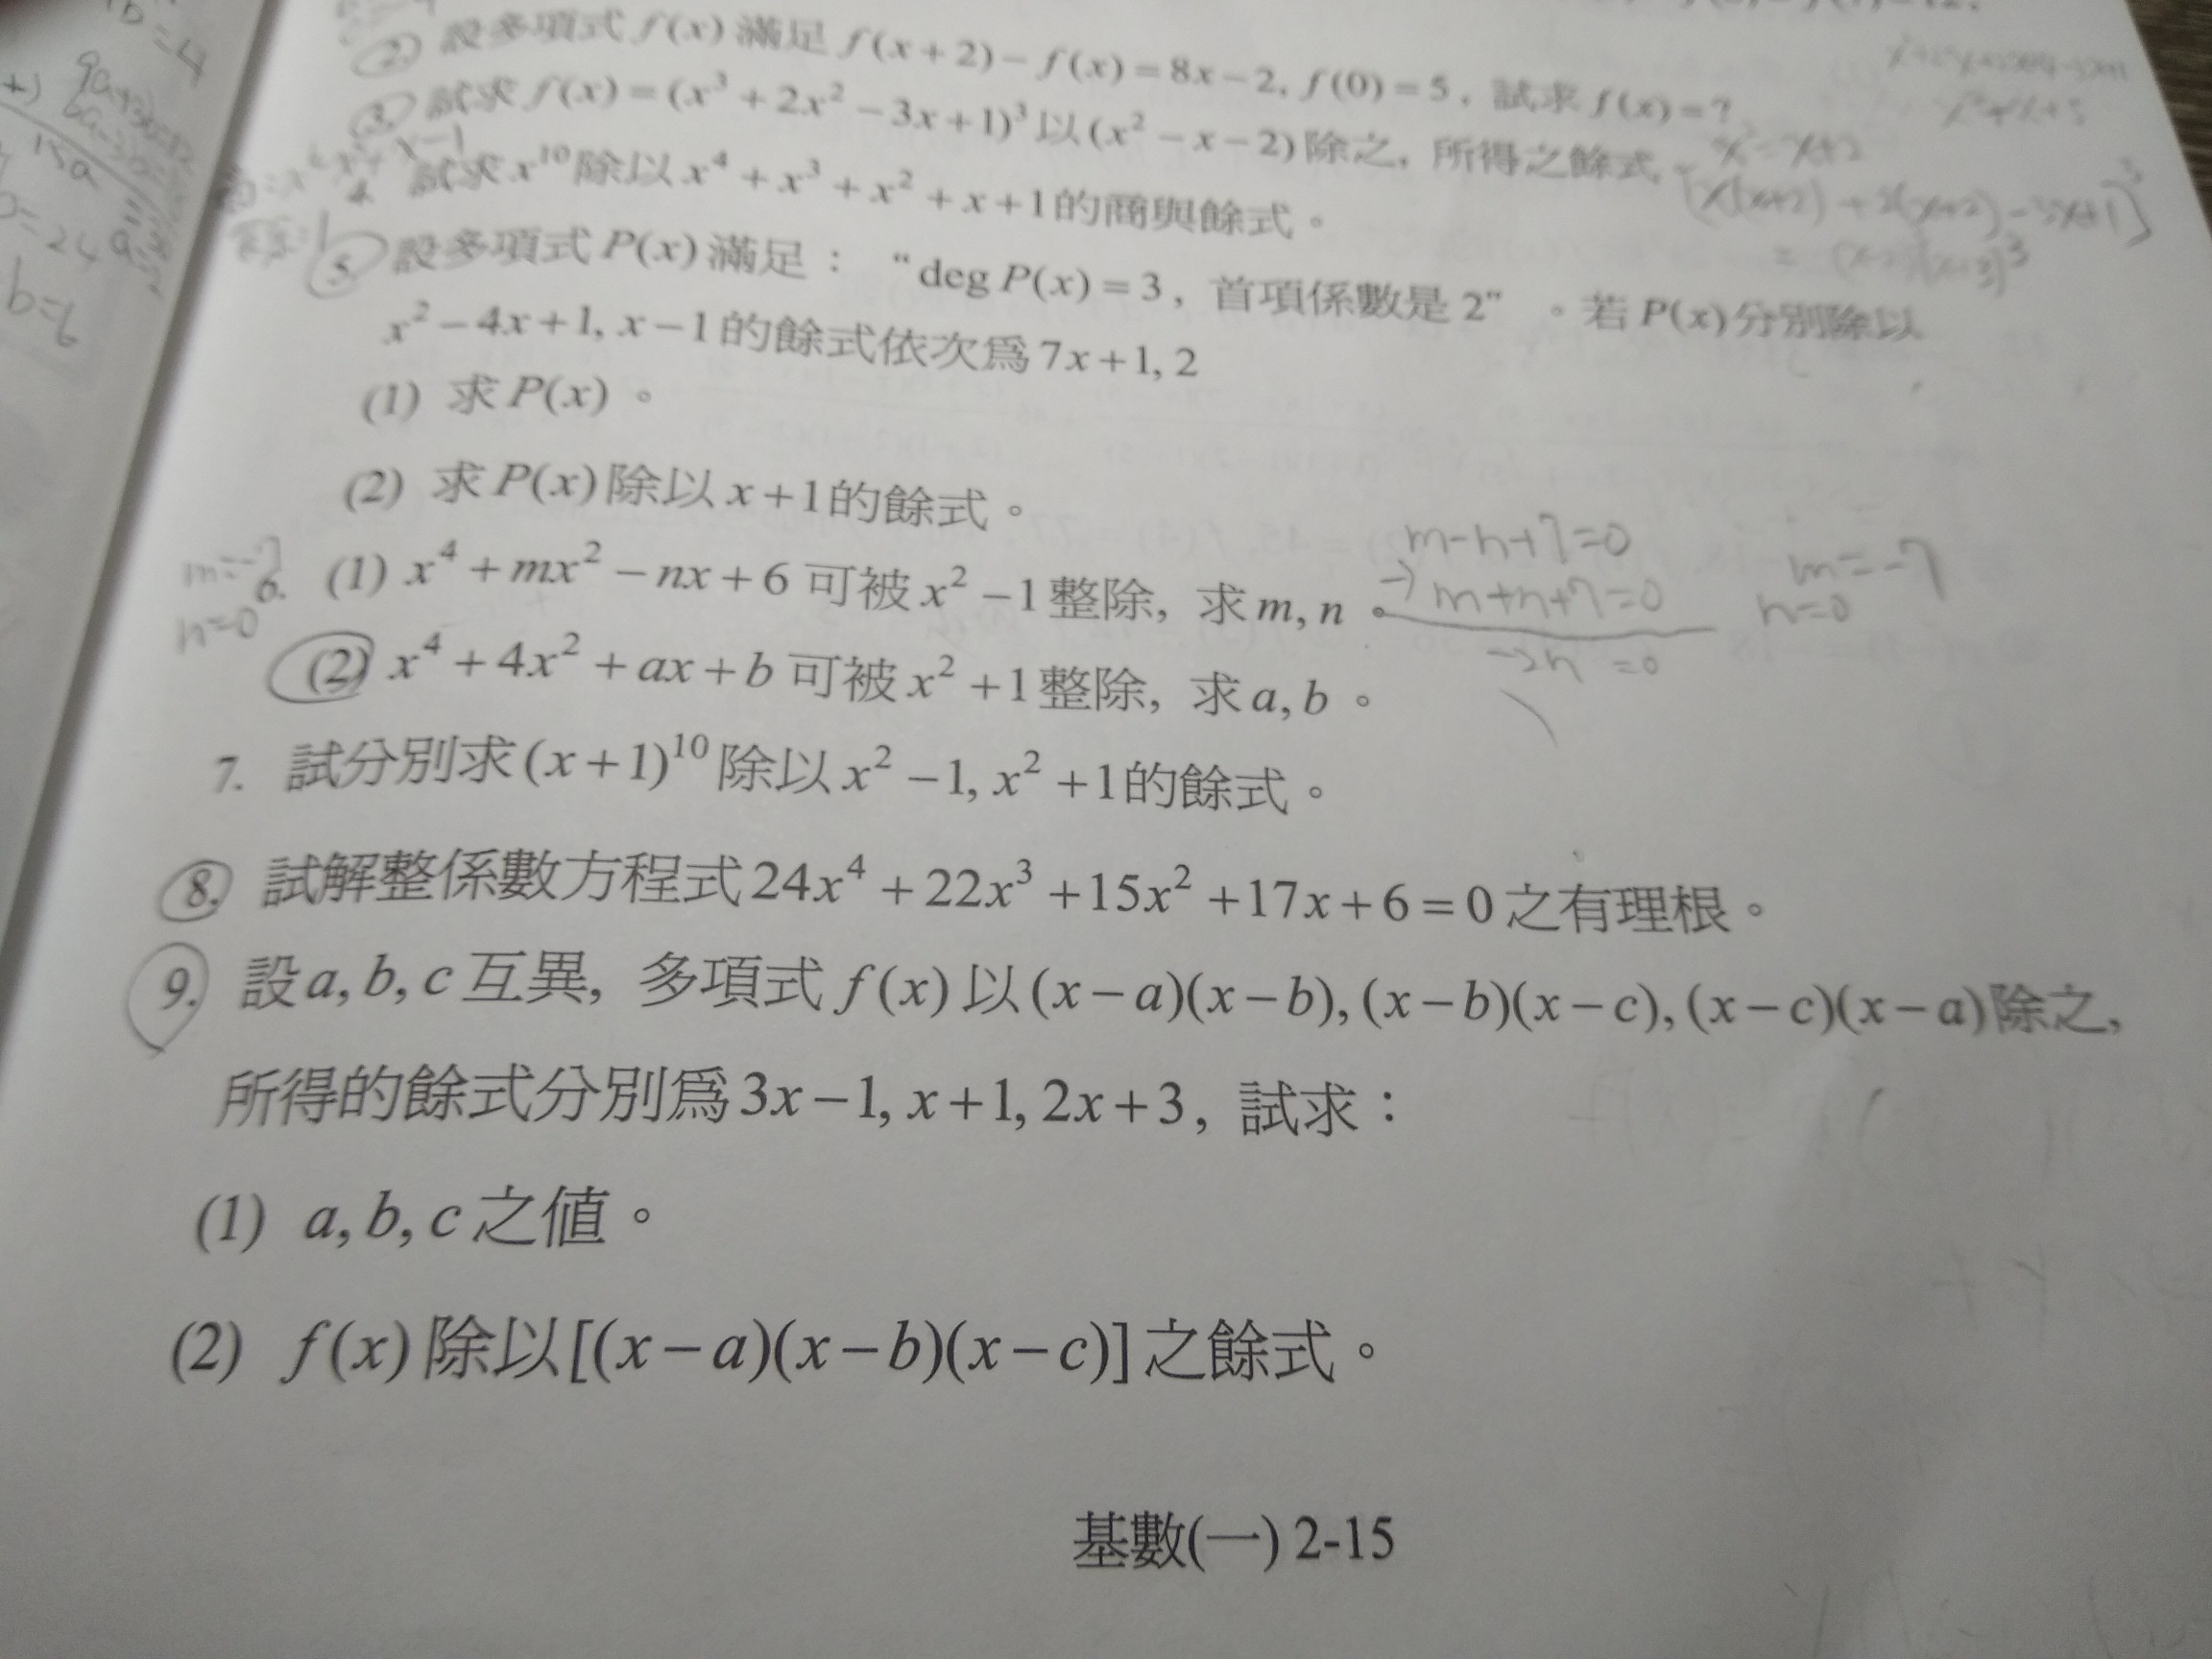 b=4
15a
b=24
b=6
2. 設多項式 f(x) 滿足 f(x+2)-f(x)=8x-2, f(0)=5，試求 f(x)=？
3. 試求 f(x)=(x³+2x²-3x+1)³ 以 (x²-x-2) 除之, 所得之餘式。
x²-x+2
4. 試求 x¹⁰ 除以 x⁴+x³+x²+x+1 的商與餘式。
[x(x+2)+2(x+2)-3x+1]³
5. 設多項式 P(x) 滿足： “deg P(x)=3, 首項係數是 2” 。若 P(x) 分別除以
x²-4x+1, x-1 的餘式依次爲 7x+1, 2
(1) 求 P(x) 。
(2) 求 P(x) 除以 x+1 的餘式。
m=-7
n=0
6. (1) x⁴+mx²-nx+6 可被 x²-1 整除, 求 m, n 。
m-n+7=0
-) m+n+7=0
-2n =0
m=-7
n=0
(2) x⁴+4x²+ax+b 可被 x²+1 整除, 求 a, b 。
7. 試分別求 (x+1)¹⁰ 除以 x²-1, x²+1 的餘式。
8. 試解整係數方程式 24x⁴+22x³+15x²+17x+6=0 之有理根。
9. 設 a, b, c 互異, 多項式 f(x) 以 (x-a)(x-b), (x-b)(x-c), (x-c)(x-a) 除之,
所得的餘式分別爲 3x-1, x+1, 2x+3, 試求：
(1) a, b, c 之值。
(2) f(x) 除以 [(x-a)(x-b)(x-c)] 之餘式。
基數(一) 2-15